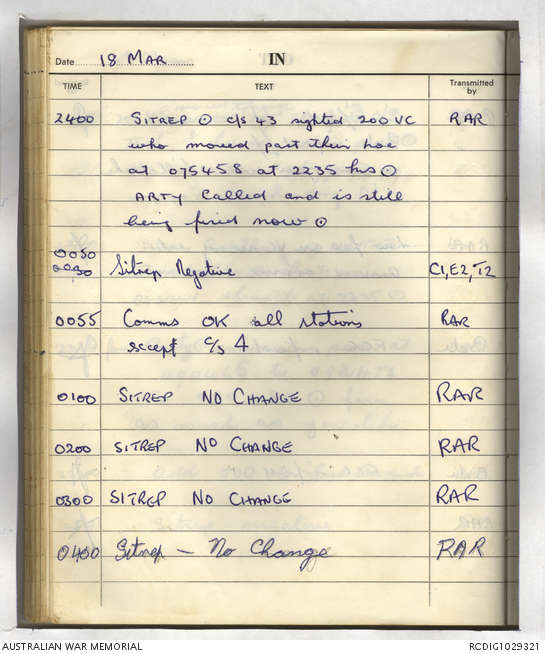 Date 18 MAR IN
TIME TEXT Transmitted by
2400 SITREP ⊙ c/s 43 sighted 200 VC RAR
who moved past their loc
at 075458 at 2235 hrs ⊙
ARTY called and is still
being fired now ⊙
0050
0030 Sitrep Negative C1, E2, T2
0055 Comms OK all stations RAR
except c/s 4
0100 SITREP NO CHANGE RAR
0200 SITREP NO CHANGE RAR
0300 SITREP NO CHANGE RAR
0400 Sitrep - No Change RAR
AUSTRALIAN WAR MEMORIAL RCDIG1029321